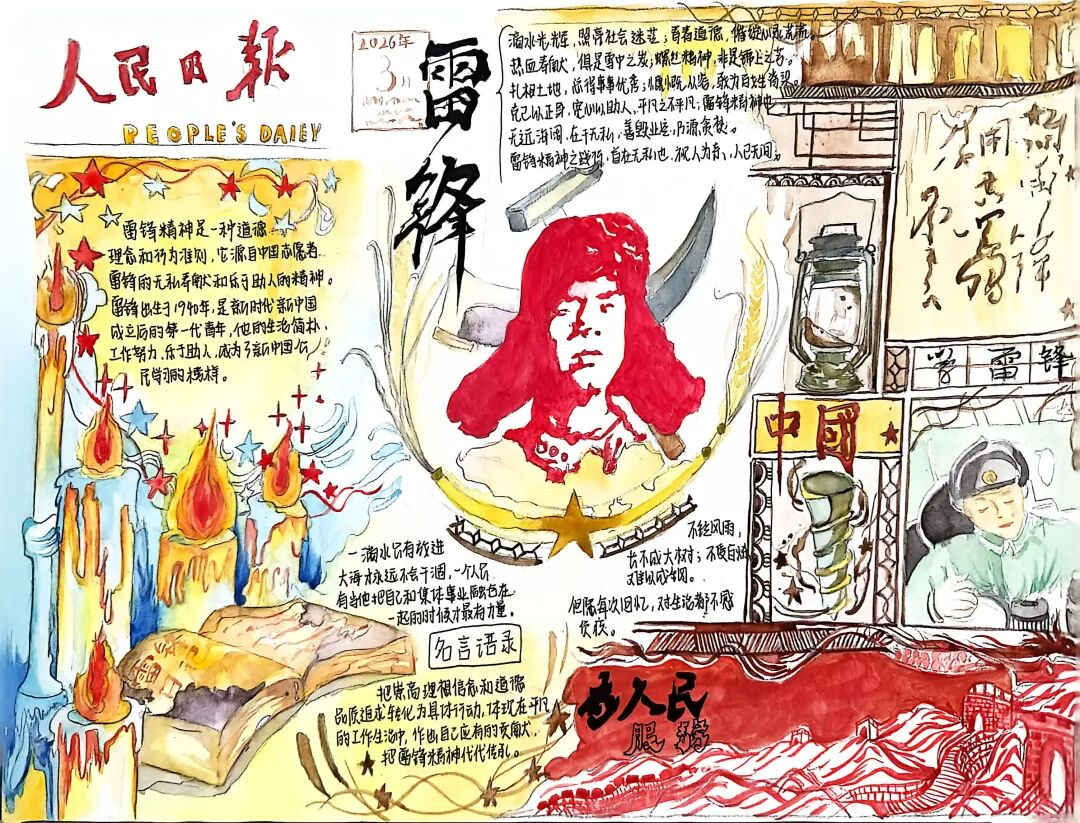 人民日報
PEOPLE'S DAIEY
2026年
3月
雷
锋
滴水光辉，照亮社会迷茫；青春道德，
热血奉献，俱是雷中之炭；螺丝精神，非是锦上之花。
扎根土地，
克己以正身，宽心以助人，平凡之不平凡；雷锋精神也
无远海阔，在于无私，
雷锋精神之践写，自在无私也，祝人为善，人己无间。
雷锋精神是一种道德
理念和行为准则，它源自中国志愿者
雷锋的无私奉献和乐于助人的精神。
雷锋出生于1940年，是新时代新中国
成立后的第一代青年，他的生活简朴、
工作努力、乐于助人，成为了新中国公
民学习的榜样。
学雷锋
中國
一滴水只有放进
大海才永远不会干涸，一个人只
有当他把自己和集体事业融合在
一起的时候才最有力量。
名言语录
不经风雨，
长不成大树；不受百炼
难以成钢。
但愿每次回忆，对生活都不感
负疚。
把崇高理想信念和道德
品质追求转化为具体行动，体现在平凡
的工作生活中，作出自己应有的贡献，
把雷锋精神代代传承。
为人民
服務